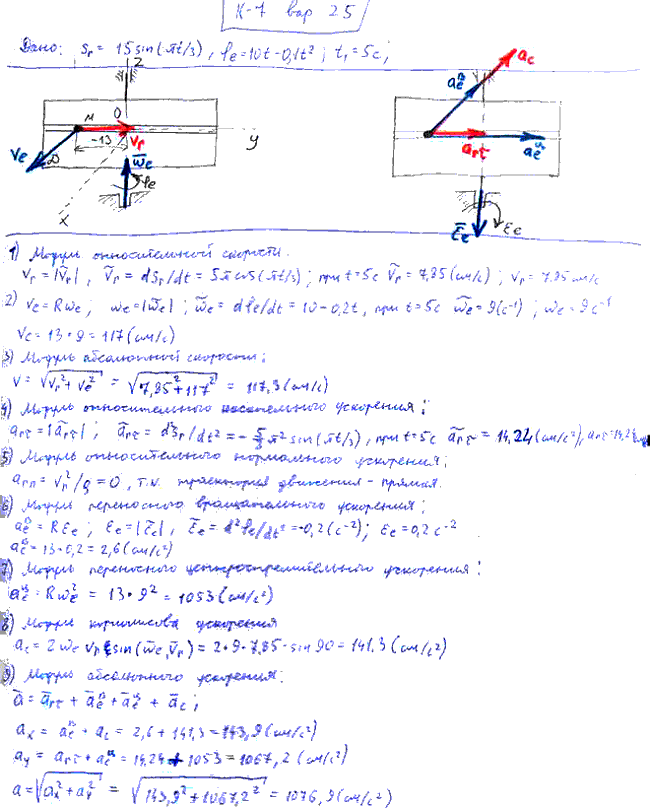 К-7 вар 25
Дано: Sr = 15 sin(πt/3), φe = 10t - 0,1t²; t₁ = 5c;
z
M
O
y
x
-13
Vr
Ve
ω̄e
φe
ac
aᵉв
arτ
aᵉц
ε̄e
εe
1) Модуль относительной скорости.
Vr = |V̄r|, Ṽr = dSr/dt = 5π cos(πt/3); при t=5c Ṽr = 7,85 (см/с); Vr = 7.85 см/с
2) Ve = Rωe; ωe = |ω̃e|; ω̃e = dφe/dt = 10 - 0,2t, при t=5c ω̃e = 9(c⁻¹); ωe = 9c⁻¹
Ve = 13•9 = 117 (см/с)
3) Модуль абсолютной скорости:
V = √(Vr² + Ve²) = √(7,85² + 117²) = 117,3 (см/с)
4) Модуль относительного касательного ускорения:
arτ = |ãrτ|; ãrτ = d²Sr/dt² = -5/3 π² sin(πt/3), при t=5c ãrτ = 14,24 (см/с²), arτ = 14,24
5) Модуль относительного нормального ускорения:
arn = Vr²/ρ = 0, т.к. траектория движения - прямая.
6) Модуль переносного вращательного ускорения;
aᵉв = Rεe; εe = |ε̃e|, ε̃e = d²φe/dt² = -0,2 (c⁻²); εe = 0,2 c⁻²
aᵉв = 13•0,2 = 2,6 (см/с²)
7) Модуль переносного центростремительного ускорения:
aᵉц = Rωe² = 13•9² = 1053 (см/с²)
8) Модуль кориолисова ускорения
ac = 2ωe Vr sin(ω̄e, V̄r) = 2•9•7,85•sin 90 = 141,3 (см/с²)
9) Модуль абсолютного ускорения:
ā = ārτ + āᵉв + āᵉц + āc;
ax = aᵉв + ac = 2,6 + 141,3 = 143,9 (см/с²)
ay = arτ + aᵉц = 14.24 + 1053 = 1067,2 (см/с²)
a = √(ax² + ay²) = √(143,9² + 1067,2²) = 1076,9 (см/с²)